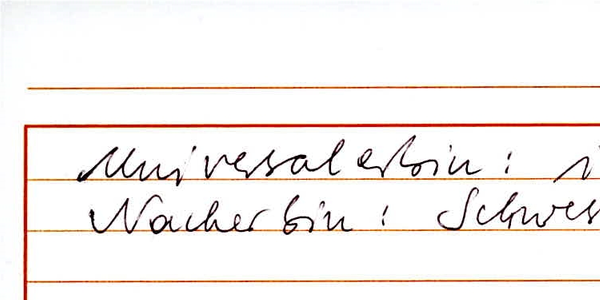 Universalerbin: i
Nacherbin: Schwes